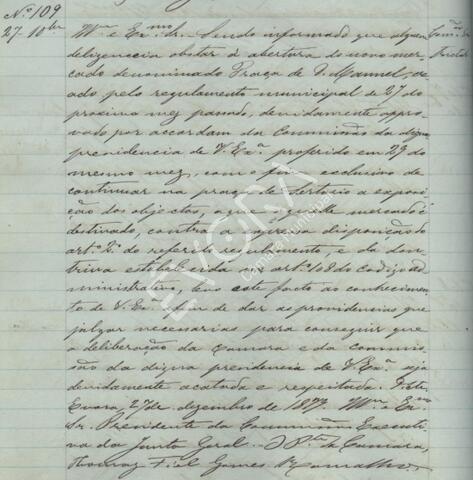 Nº 109
27 10bro
Illmo e Exmo Sr. Sendo informado que alguem
deligenceia obstar á abertura do novo mer-
cado denominado Praça de D. Manuel, cre-
ado pelo regulamento municipal de 27 do
proximo mez passado, devidamente appro-
vado por accordam da Commissão da digna
presidencia de V. Exª proferido em 29 do
mesmo mez, com o fim exclusivo de
continuar na praça de Sertorio a exposi-
ção dos objectos, a que o mercado é
destinado, contra a expressa disposição do
artº 2º do referido regulamento, e da dou-
trina estabelecida no artº 108 do codigo ad-
ministrativo, levo este facto ao conhecimen-
to de V. Exª a fim de dar as providencias que
julgar necesarias para conseguir que
a deliberação da Camara e da Commis-
são da digna presidencia de V. Exª seja
devidamente acatada e respeitada.
Evora, 27 de dezembro de 1877. Illmo e Exmo
Sr. Presidente da Commissão Executi-
va da Junta Geral. O Pte da Camara,
Thomaz Fiel Gomes Ramalho.
EVORA
Câmara Municipal